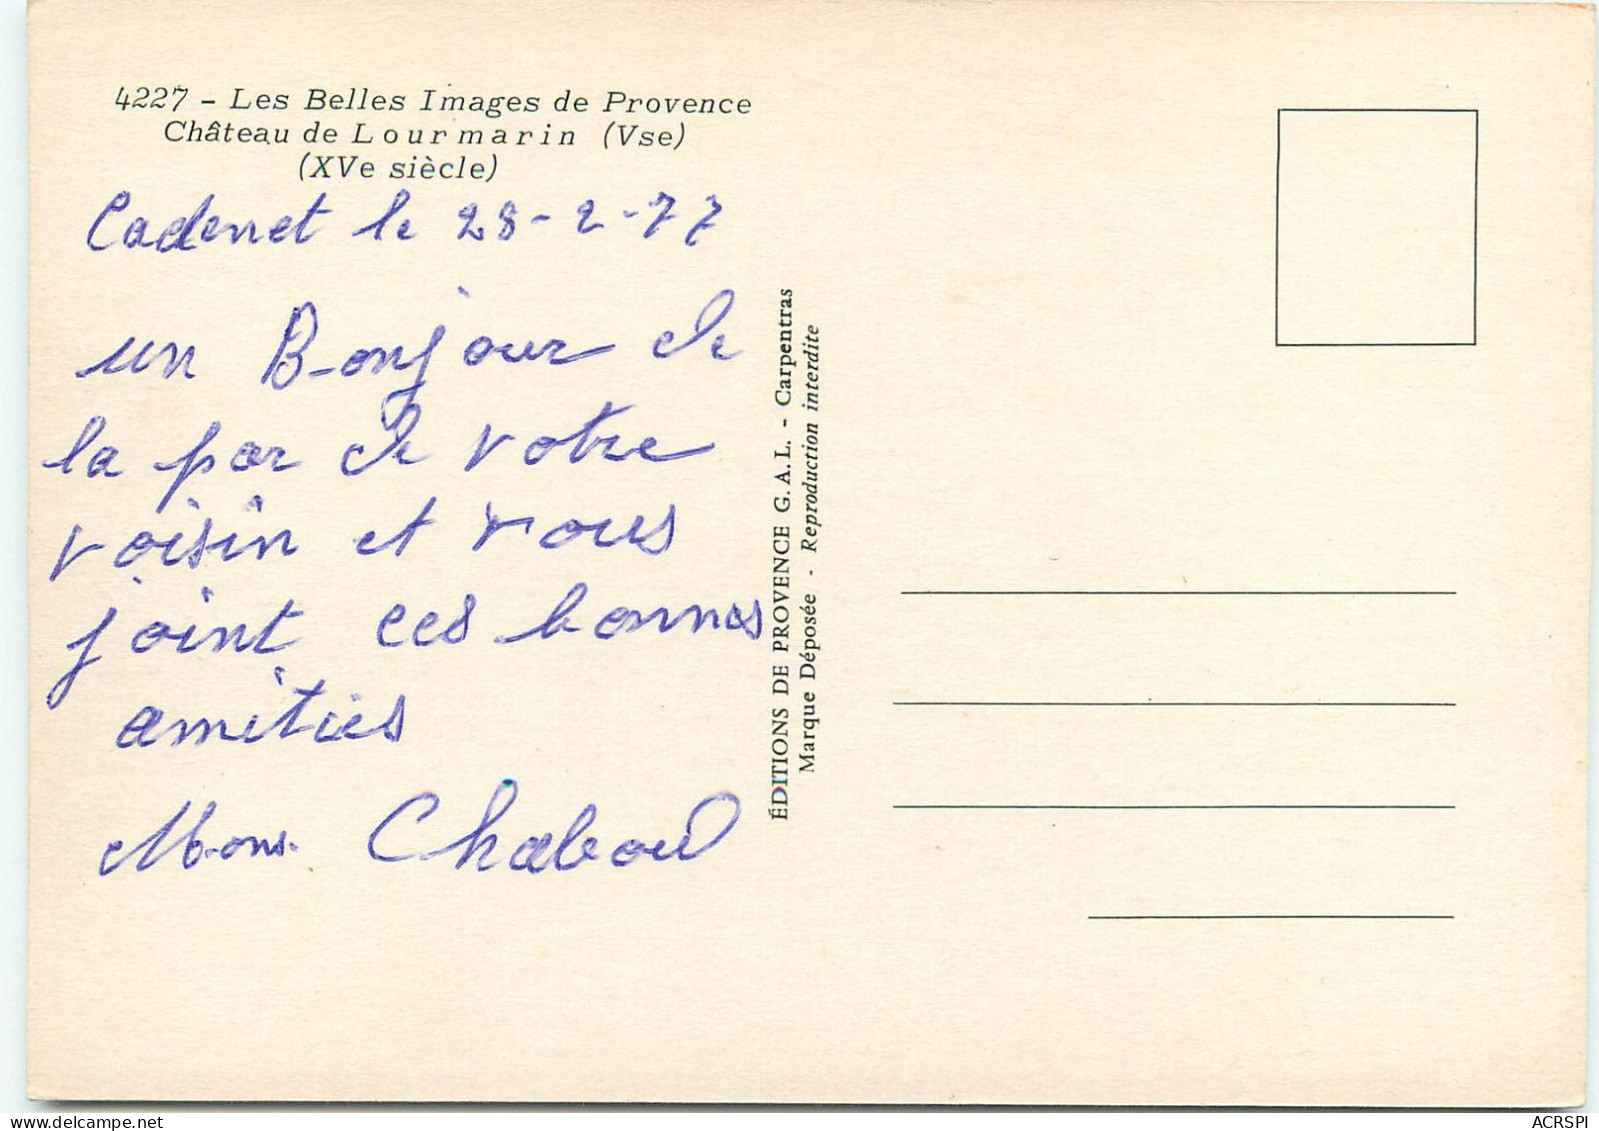 4227 - Les Belles Images de Provence
Château de Lourmarin (Vse)
(XVe siècle)
Cadenet le 28-2-77
un Bonjour de
la par de votre
voisin et vous
joint ces bonnes
amities
Mons. Chaboud
ÉDITIONS DE PROVENCE G.A.L. - Carpentras
Marque Déposée - Reproduction interdite
www.delcampe.net
ACRSPI